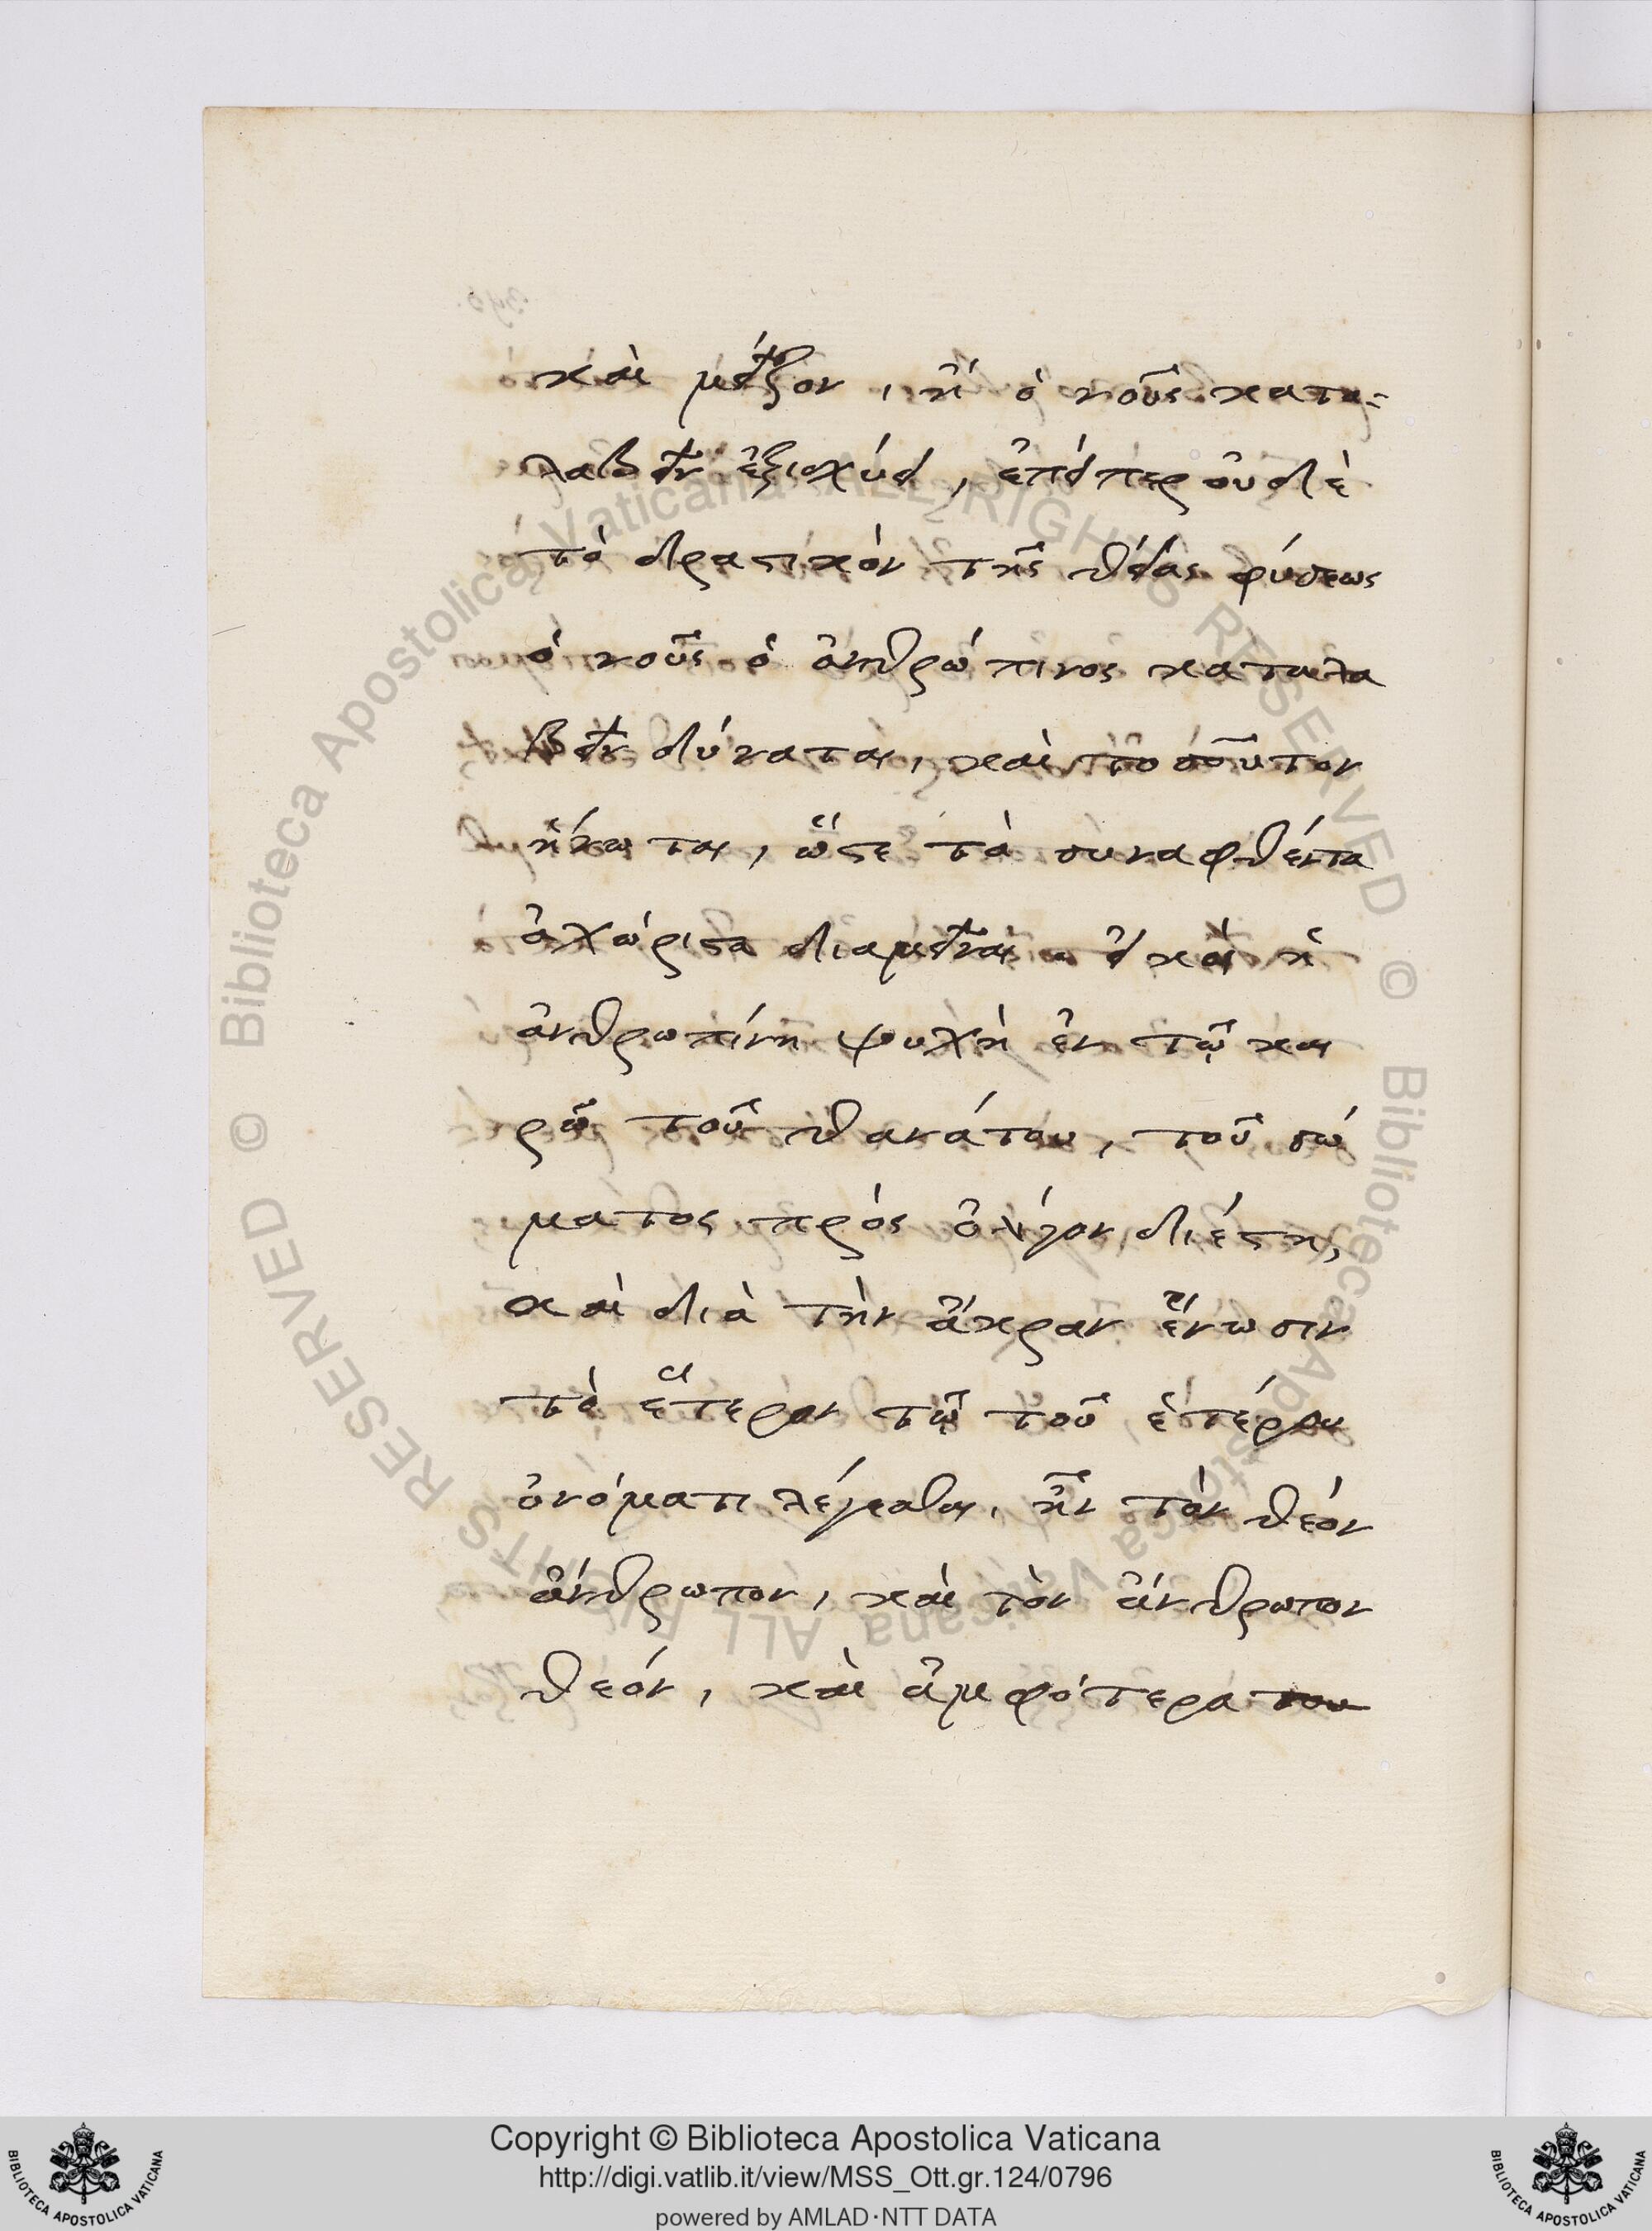 καὶ μεῖζον, ἢ ὁ νοῦς κατα-
λαβεῖν ἐξισχύει, ἐπείπερ οὐδὲ
τὸ δραστικὸν τῆς θείας φύσεως
ὁ νοῦς ὁ ἀνθρώπινος καταλα
βεῖν δύναται, καὶ τοσοῦτον
ἥνωται, ὥστε τὰ συναφθέντα
ἀχώριστα διαμεῖναι εἰ καὶ ἡ
ἀνθρωπίνη ψυχὴ ἐν τῷ και
ρῷ τοῦ θανάτου, τοῦ σώ
ματος πρὸς ὀλίγον διέστη,
καὶ διὰ τὴν ἄκραν ἕνωσιν
τὸ ἕτερον τῷ τοῦ ἑτέρου
ὀνόματι λέγεσθαι, ἢν τὸν θεὸν
ἄνθρωπον, καὶ τὸν ἄνθρωπον
θεόν, καὶ ἀμφότερα του
Copyright © Biblioteca Apostolica Vaticana
http://digi.vatlib.it/view/MSS_Ott.gr.124/0796
powered by AMLAD·NTT DATA